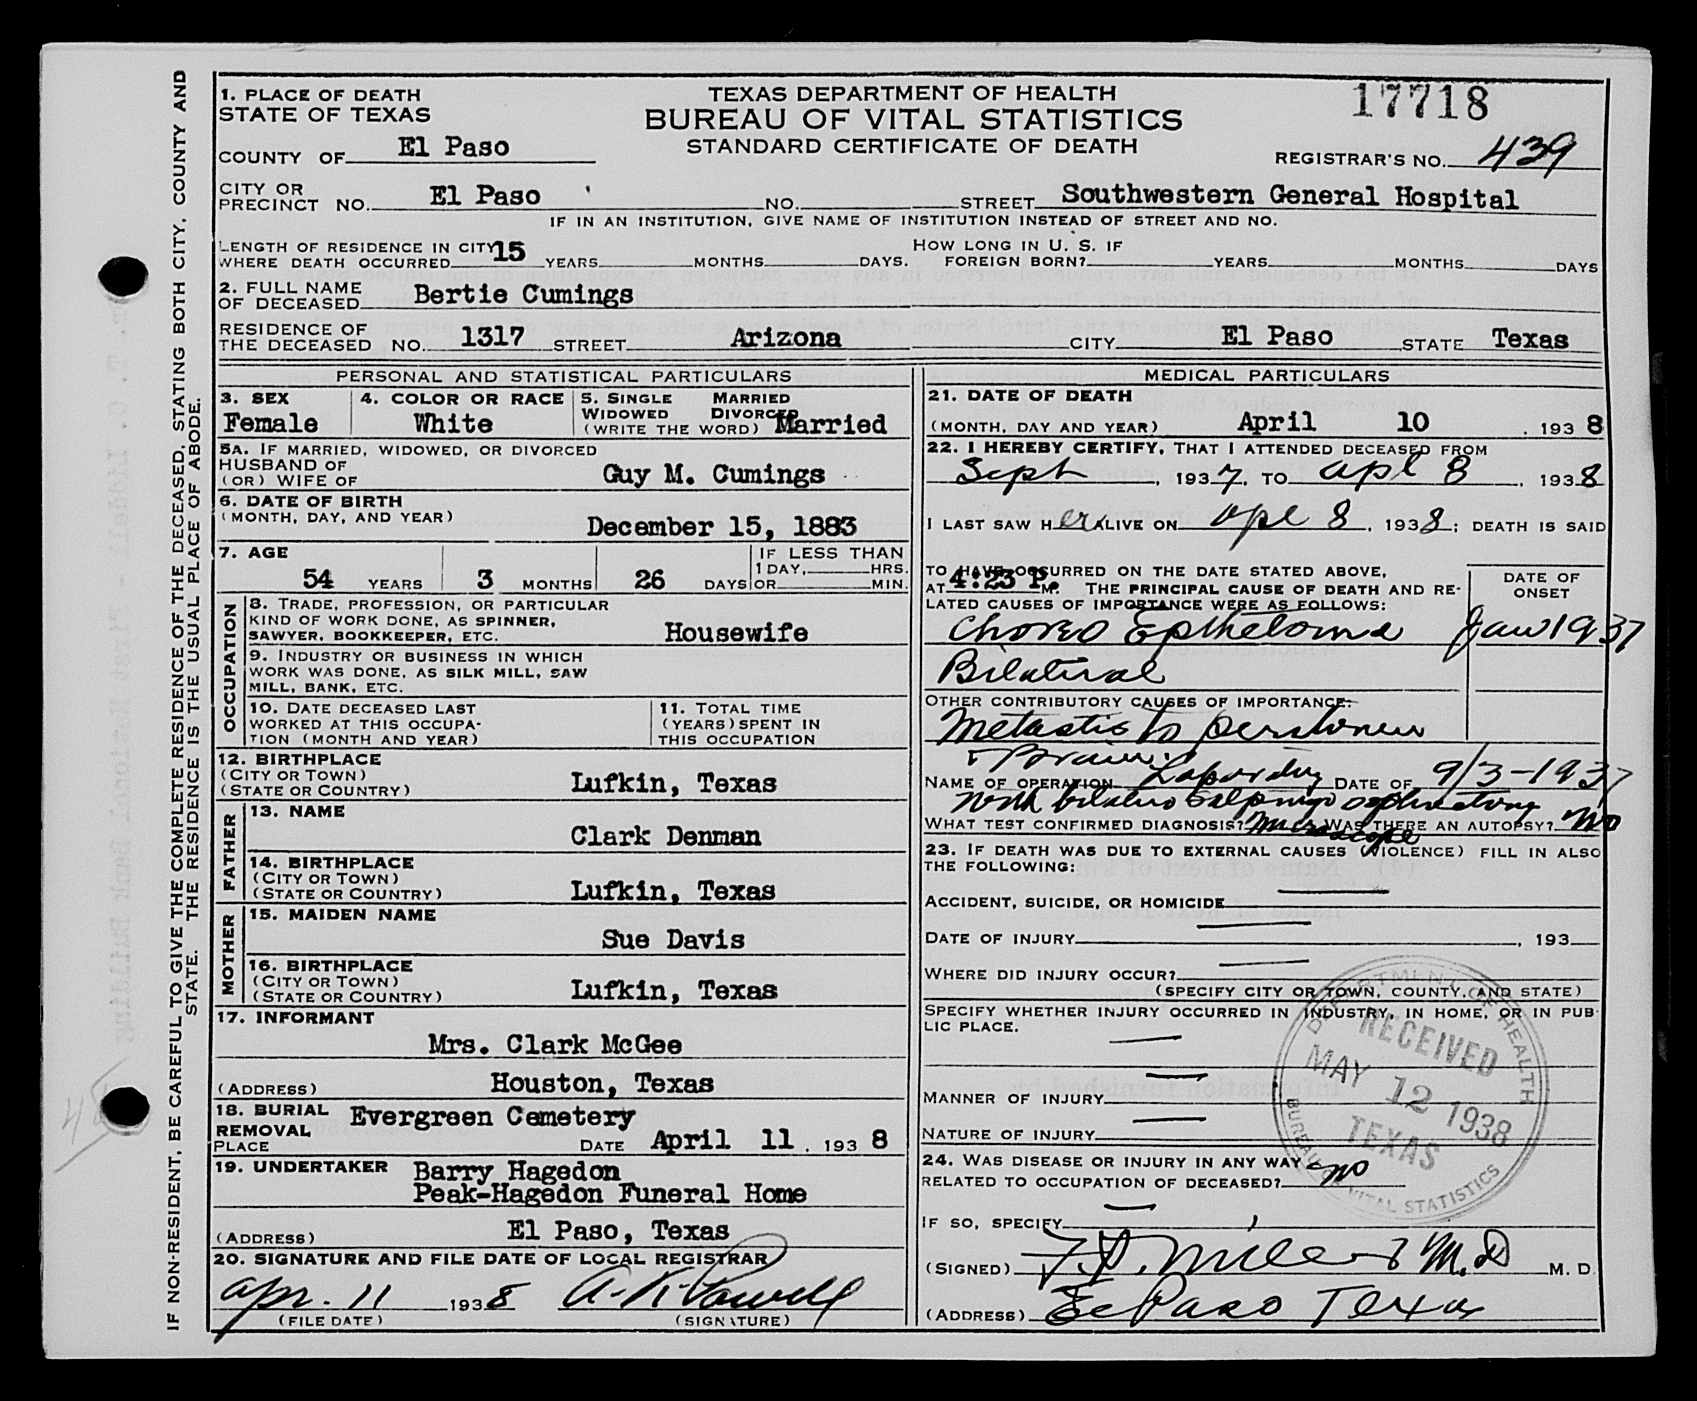 17718
TEXAS DEPARTMENT OF HEALTH
BUREAU OF VITAL STATISTICS
STANDARD CERTIFICATE OF DEATH
REGISTRAR'S NO. 439
1. PLACE OF DEATH
STATE OF TEXAS
COUNTY OF El Paso
CITY OR PRECINCT NO. El Paso NO. STREET Southwestern General Hospital
IF IN AN INSTITUTION, GIVE NAME OF INSTITUTION INSTEAD OF STREET AND NO.
LENGTH OF RESIDENCE IN CITY WHERE DEATH OCCURRED 15 YEARS MONTHS DAYS. HOW LONG IN U. S. IF FOREIGN BORN? YEARS MONTHS DAYS
2. FULL NAME OF DECEASED Bertie Cumings
RESIDENCE OF THE DECEASED NO. 1317 STREET Arizona CITY El Paso STATE Texas
PERSONAL AND STATISTICAL PARTICULARS
3. SEX Female
4. COLOR OR RACE White
5. SINGLE MARRIED WIDOWED DIVORCED (WRITE THE WORD) Married
5A. IF MARRIED, WIDOWED, OR DIVORCED
HUSBAND OF
(OR) WIFE OF Guy M. Cumings
6. DATE OF BIRTH
(MONTH, DAY, AND YEAR) December 15, 1883
7. AGE 54 YEARS 3 MONTHS 26 DAYS IF LESS THAN 1 DAY, HRS. OR MIN.
OCCUPATION
8. TRADE, PROFESSION, OR PARTICULAR
KIND OF WORK DONE, AS SPINNER,
SAWYER, BOOKKEEPER, ETC. Housewife
9. INDUSTRY OR BUSINESS IN WHICH
WORK WAS DONE, AS SILK MILL, SAW
MILL, BANK, ETC.
10. DATE DECEASED LAST
WORKED AT THIS OCCUPA-
TION (MONTH AND YEAR)
11. TOTAL TIME
(YEARS) SPENT IN
THIS OCCUPATION
12. BIRTHPLACE
(CITY OR TOWN)
(STATE OR COUNTRY) Lufkin, Texas
FATHER
13. NAME
Clark Denman
14. BIRTHPLACE
(CITY OR TOWN)
(STATE OR COUNTRY) Lufkin, Texas
MOTHER
15. MAIDEN NAME
Sue Davis
16. BIRTHPLACE
(CITY OR TOWN)
(STATE OR COUNTRY) Lufkin, Texas
17. INFORMANT
Mrs. Clark McGee
(ADDRESS) Houston, Texas
18. BURIAL Evergreen Cemetery
REMOVAL
PLACE DATE April 11, 1938
19. UNDERTAKER Barry Hagedon
Peak-Hagedon Funeral Home
(ADDRESS) El Paso, Texas
20. SIGNATURE AND FILE DATE OF LOCAL REGISTRAR
Apr. 11 1938 A. K. Powell
(FILE DATE) (SIGNATURE)
MEDICAL PARTICULARS
21. DATE OF DEATH
(MONTH, DAY AND YEAR) April 10, 1938
22. I HEREBY CERTIFY, THAT I ATTENDED DECEASED FROM
Sept, 1937, TO Apl 8, 1938
I LAST SAW HER ALIVE ON Apl 8, 1938; DEATH IS SAID
TO HAVE OCCURRED ON THE DATE STATED ABOVE,
AT 4:23 P. M. THE PRINCIPAL CAUSE OF DEATH AND RE-
LATED CAUSES OF IMPORTANCE WERE AS FOLLOWS:
DATE OF ONSET
Choreo Eptheloma Jan 1937
Bilateral
OTHER CONTRIBUTORY CAUSES OF IMPORTANCE:
Metastis to
& Brain
NAME OF OPERATION DATE OF 9/3-1937
WHAT TEST CONFIRMED DIAGNOSIS? Microscope WAS THERE AN AUTOPSY? No
23. IF DEATH WAS DUE TO EXTERNAL CAUSES (VIOLENCE) FILL IN ALSO
THE FOLLOWING:
ACCIDENT, SUICIDE, OR HOMICIDE
DATE OF INJURY , 193
WHERE DID INJURY OCCUR?
(SPECIFY CITY OR TOWN, COUNTY, AND STATE)
SPECIFY WHETHER INJURY OCCURRED IN INDUSTRY, IN HOME, OR IN PUB-
LIC PLACE.
MANNER OF INJURY
NATURE OF INJURY
24. WAS DISEASE OR INJURY IN ANY WAY
RELATED TO OCCUPATION OF DECEASED? No
IF SO, SPECIFY
(SIGNED) F. P. Miller M.D M. D.
(ADDRESS) El Paso Texas
DEPARTMENT OF HEALTH
RECEIVED
MAY 12 1938
TEXAS
BUREAU VITAL STATISTICS
IF NON-RESIDENT, BE CAREFUL TO GIVE THE COMPLETE RESIDENCE OF THE DECEASED, STATING BOTH CITY, COUNTY AND
STATE. THE RESIDENCE IS THE USUAL PLACE OF ABODE.